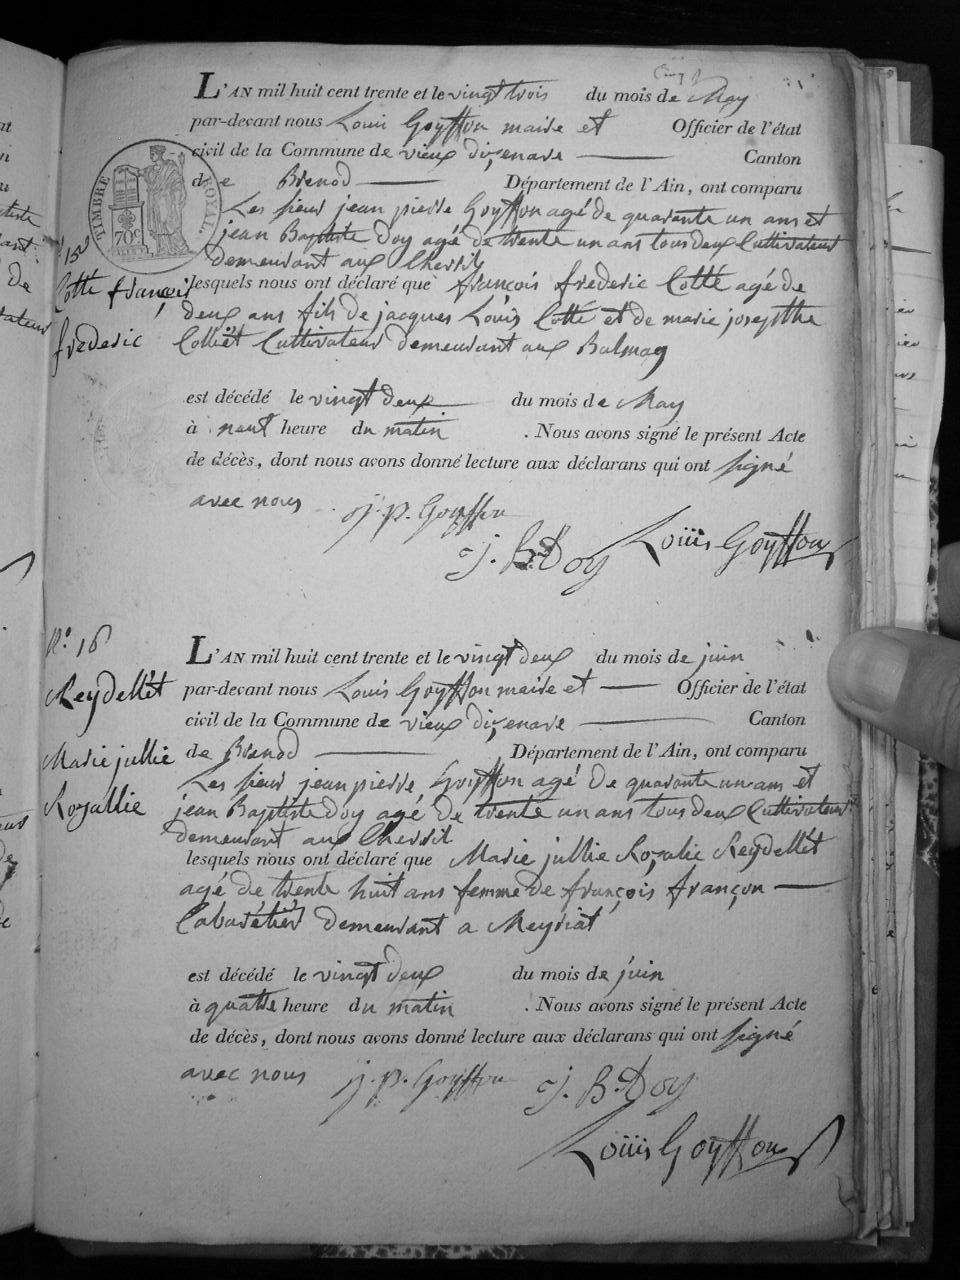 L'AN mil huit cent trente et le vingt trois du mois de May
par-devant nous Louis Goyffon maire et Officier de l'état
civil de la Commune de vieux dizenave Canton
de Brenod Département de l'Ain, ont comparu
TIMBRE ROYAL
70c
Les sieur jean pierre Goyffon agé de quarante un ans et
jean Baptiste Doy agé de trente un ans tous deux Cultivateur
demeurant aux
15
Cotte françois
frederic
lesquels nous ont déclaré que françois frederic Cotte agé de
deux ans fils de jacques Louis Cotte et de marie josepthe
Colliet Cultivateur demeurant aux Balmay
est décédé le vingt deux du mois de May
à neuf heure du matin . Nous avons signé le présent Acte
de décès, dont nous avons donné lecture aux déclarans qui ont signé
avec nous j. p. Goyffon
j. B. Doy Louiis Goyffon
N.° 16
Reydellet
Marie jullie
Rozallie
L'AN mil huit cent trente et le vingt deux du mois de juin
par-devant nous Louis Goyffon maire et Officier de l'état
civil de la Commune de vieux dizenave Canton
de Brenod Département de l'Ain, ont comparu
Les sieur jean pierre Goyffon agé de quarante un ans et
jean Baptiste Doy agé de trente un ans tous deux Cultivateur
demeurant aux
lesquels nous ont déclaré que Marie jullie Rozalie Reydellet
agé de trente huit ans femme de françois françon
Cabarétier demeurant a Meyriat
est décédé le vingt deux du mois de juin
à quatre heure du matin . Nous avons signé le présent Acte
de décès, dont nous avons donné lecture aux déclarans qui ont signé
avec nous j. p. Goyffon j. B. Doy
Louiis Goyffon